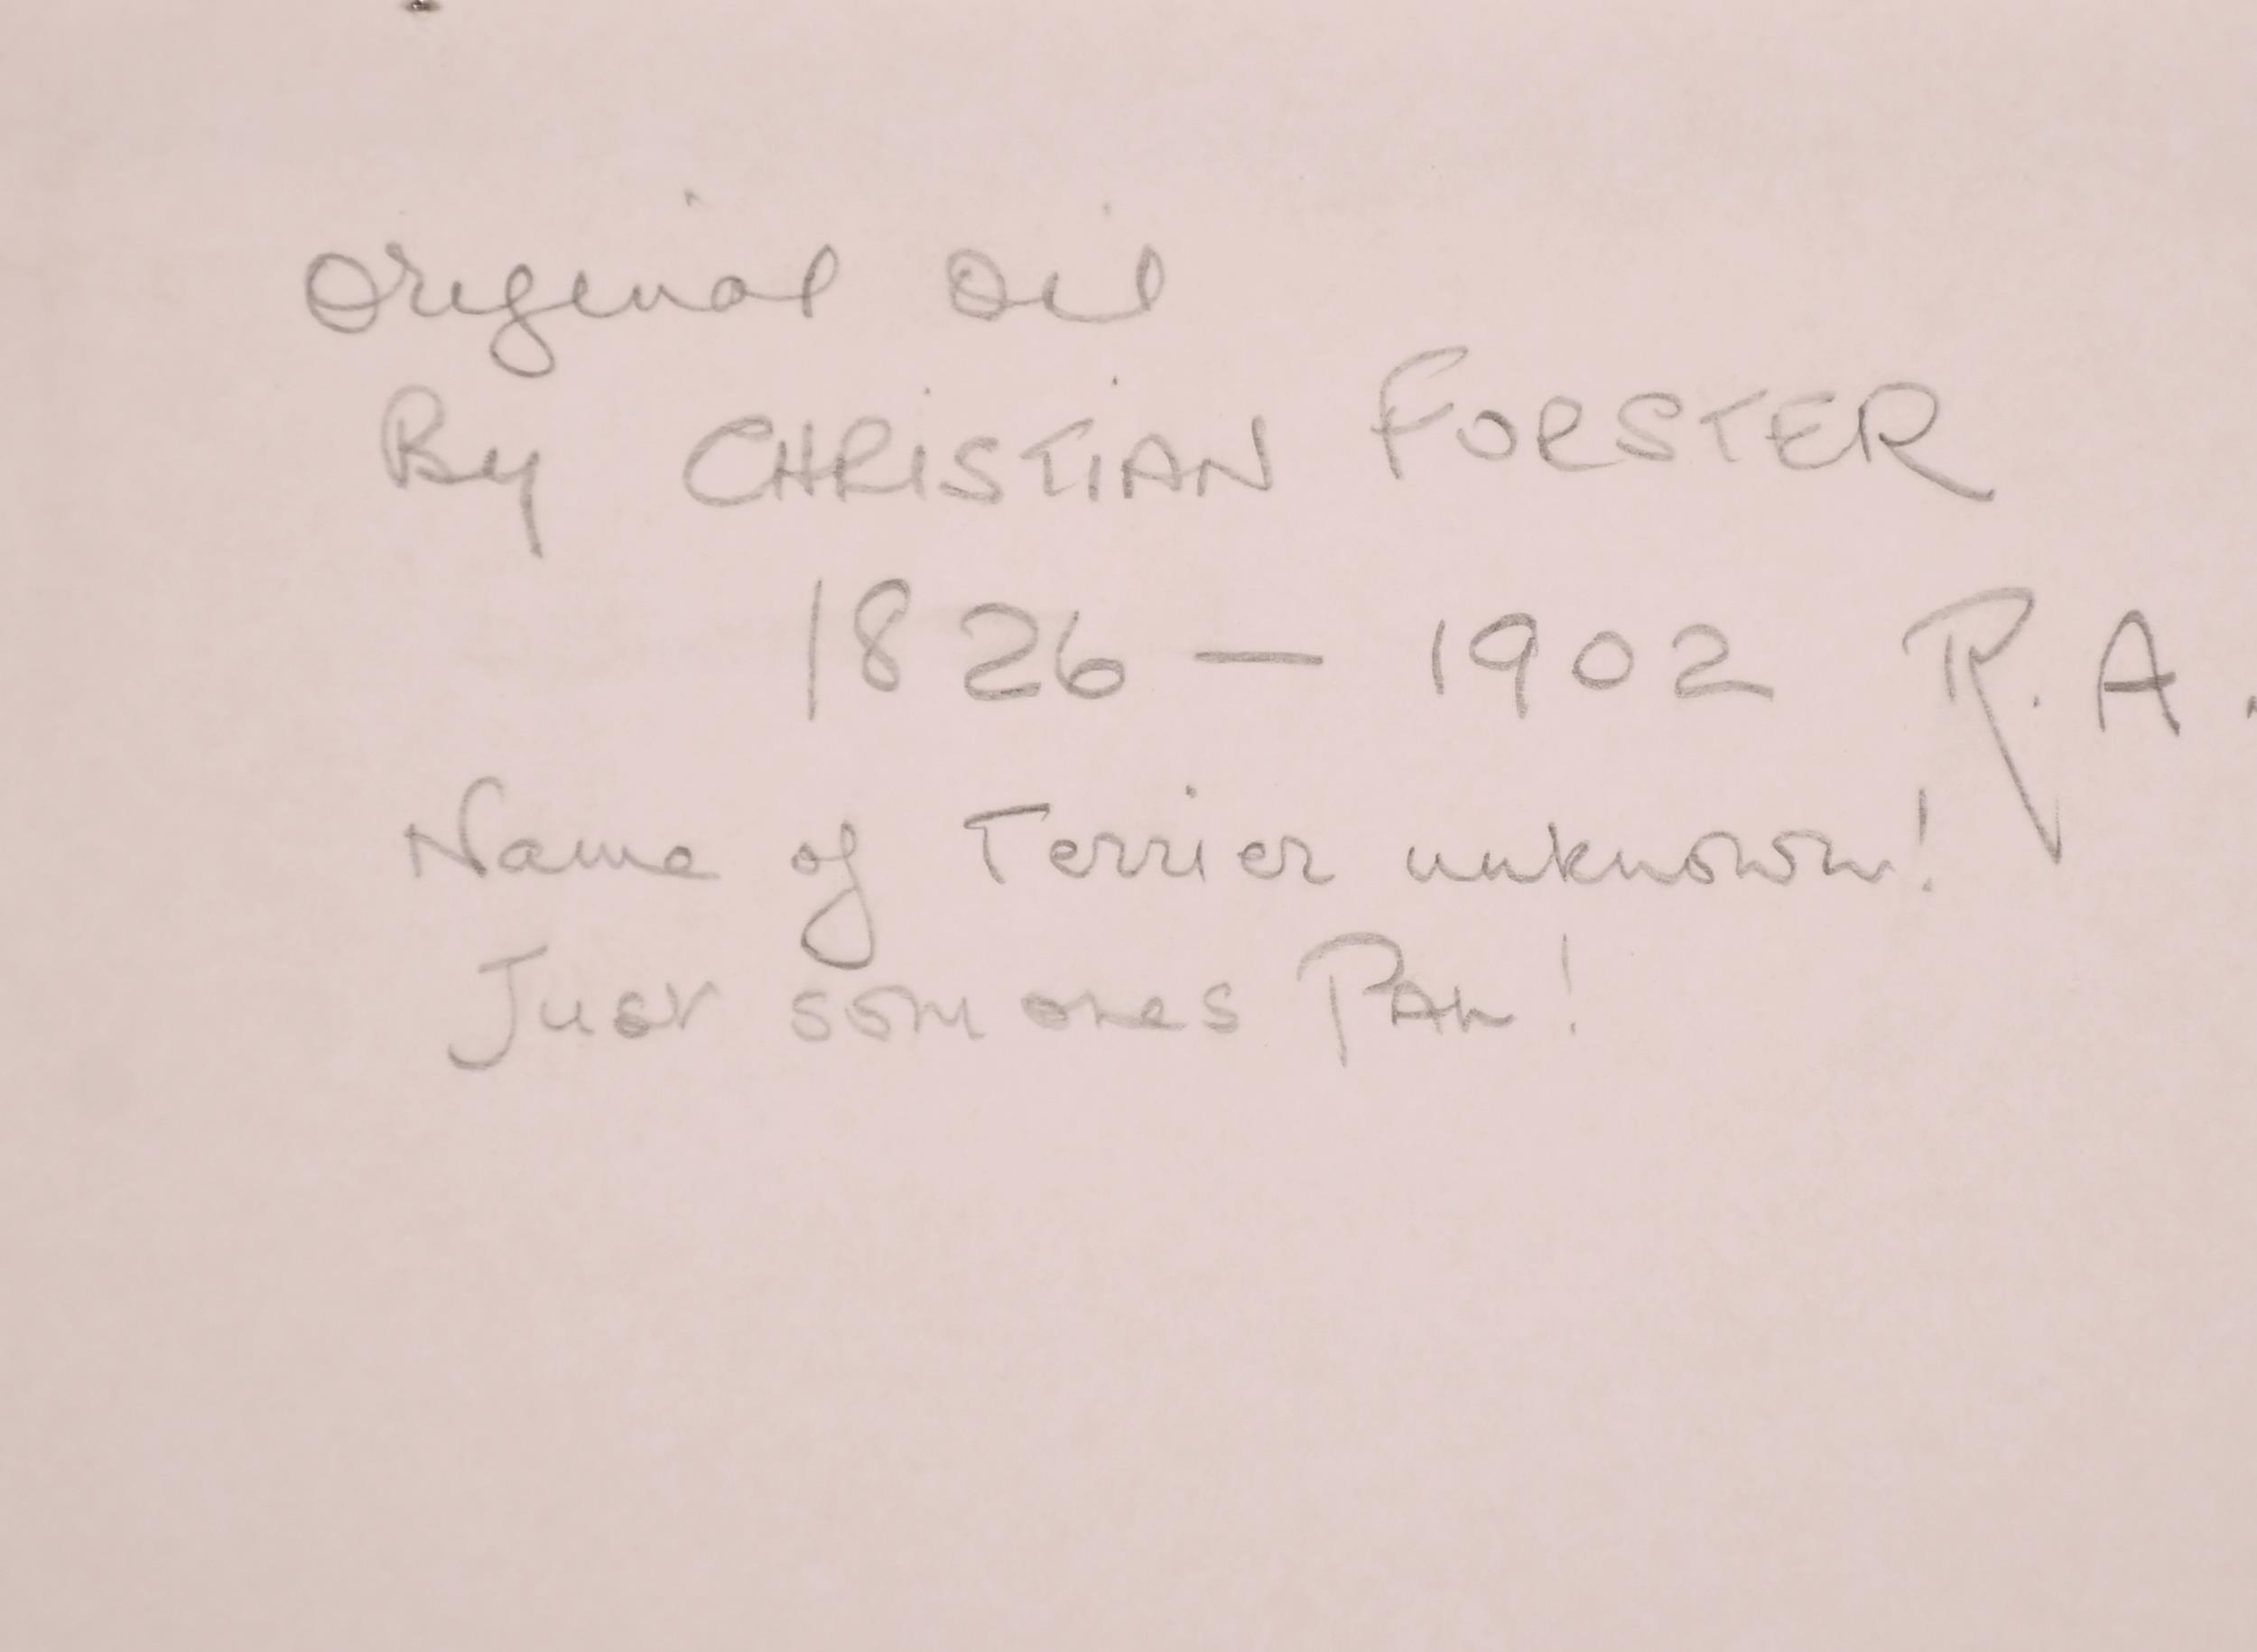 Original Oil
By CHRISTIAN FORSTER
1826 — 1902 R.A.
Name of Terrier unknown!
Just someones